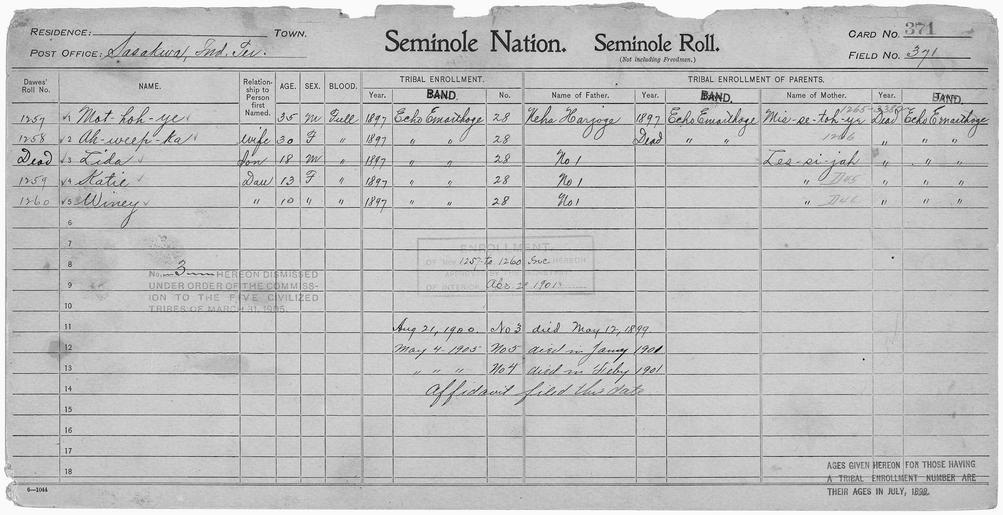 RESIDENCE: TOWN.
POST OFFICE: Sasakwa, Ind. Ter.
Seminole Nation. Seminole Roll.
(Not including Freedmen.)
CARD NO. 371
FIELD NO. 371
Dawes' Roll No. NAME. Relationship to Person first Named. AGE. SEX. BLOOD. TRIBAL ENROLLMENT. Year. BAND. No. TRIBAL ENROLLMENT OF PARENTS. Name of Father. Year. BAND. Name of Mother. Year. BAND.
1257 1 Mot-hoh-ye 35 M Full 1897 Echo Emarthoge 28 Neha Harjoge 1897 Echo Emarthoge Mis-se-toh-ye Dead Echo Emarthoge
1258 2 Ah-weep-ka Wife 30 F " 1897 " " 28 Dead " " " " "
Dead 3 Lida Son 18 M " 1897 " " 28 No 1 Les-si-jah " " "
1259 4 Katie Dau 13 F " 1897 " " 28 No 1 " " " "
1260 5 Winey " 10 " " 1897 " " 28 No 1 " " " "
6
7
8
9
10
11
12
13
14
15
16
17
18
No. 3 HEREON DISMISSED
UNDER ORDER OF THE COMMISSION
TO THE FIVE CIVILIZED
TRIBES OF MARCH 31, 1905.
ENROLLMENT
OF NOS. 1257 to 1260 Inc HEREON
APPROVED BY THE SECRETARY
OF INTERIOR Apr 2 1901
Aug 21, 1900. No 3 died May 12, 1899
May 4 - 1905 No 5 died in Jany 1901
" " " No 4 died in Feby 1901
Affidavit filed this date
AGES GIVEN HEREON FOR THOSE HAVING
A TRIBAL ENROLLMENT NUMBER ARE
THEIR AGES IN JULY, 1898.
6—1044